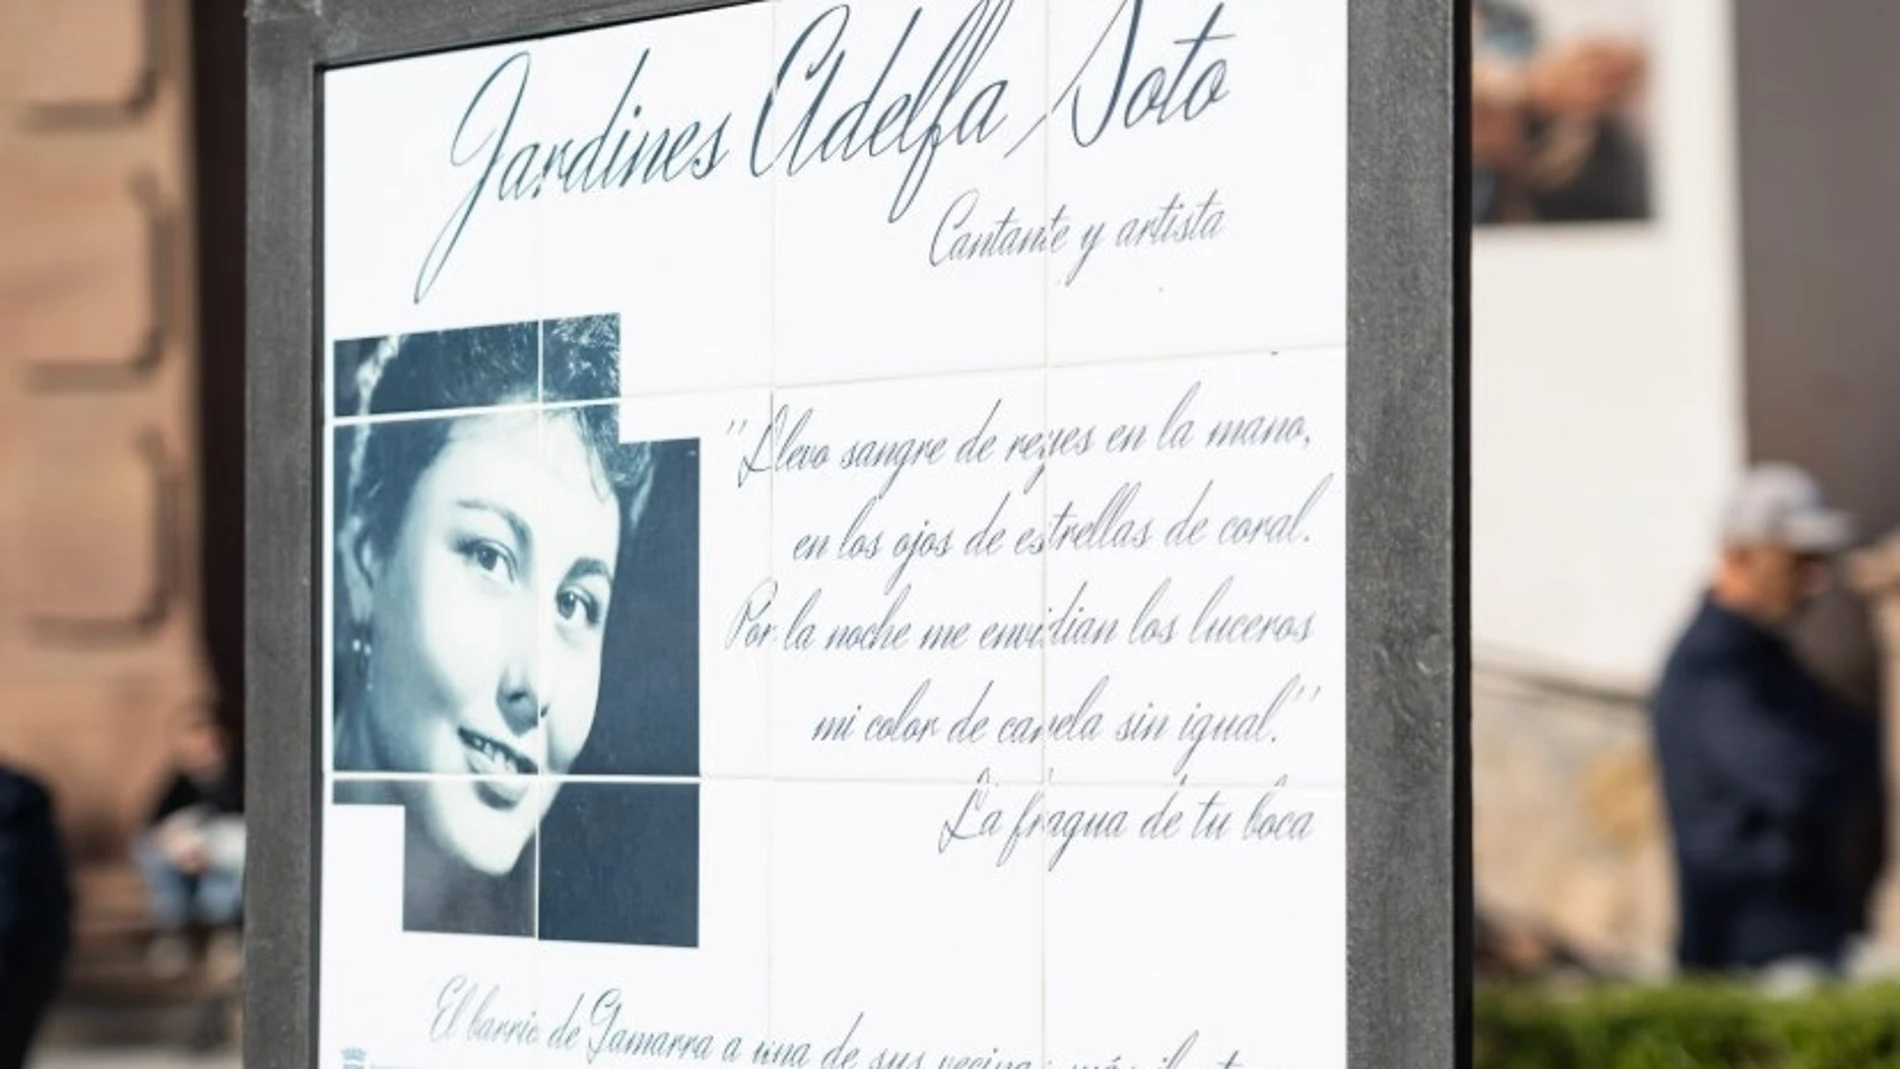 Jardines Adelfa Soto
Cantante y artista
"Llevo sangre de reyes en la mano,
en los ojos de estrellas de coral.
Por la noche me envidian los luceros
mi color de canela sin igual."
La fragua de tu boca
El barrio de Gamarra a una de sus vecinas más